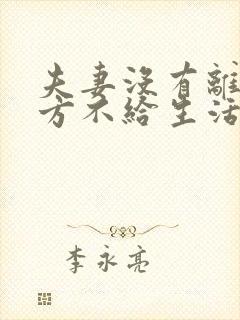 夫妻沒有離
方不給生活
李永亮